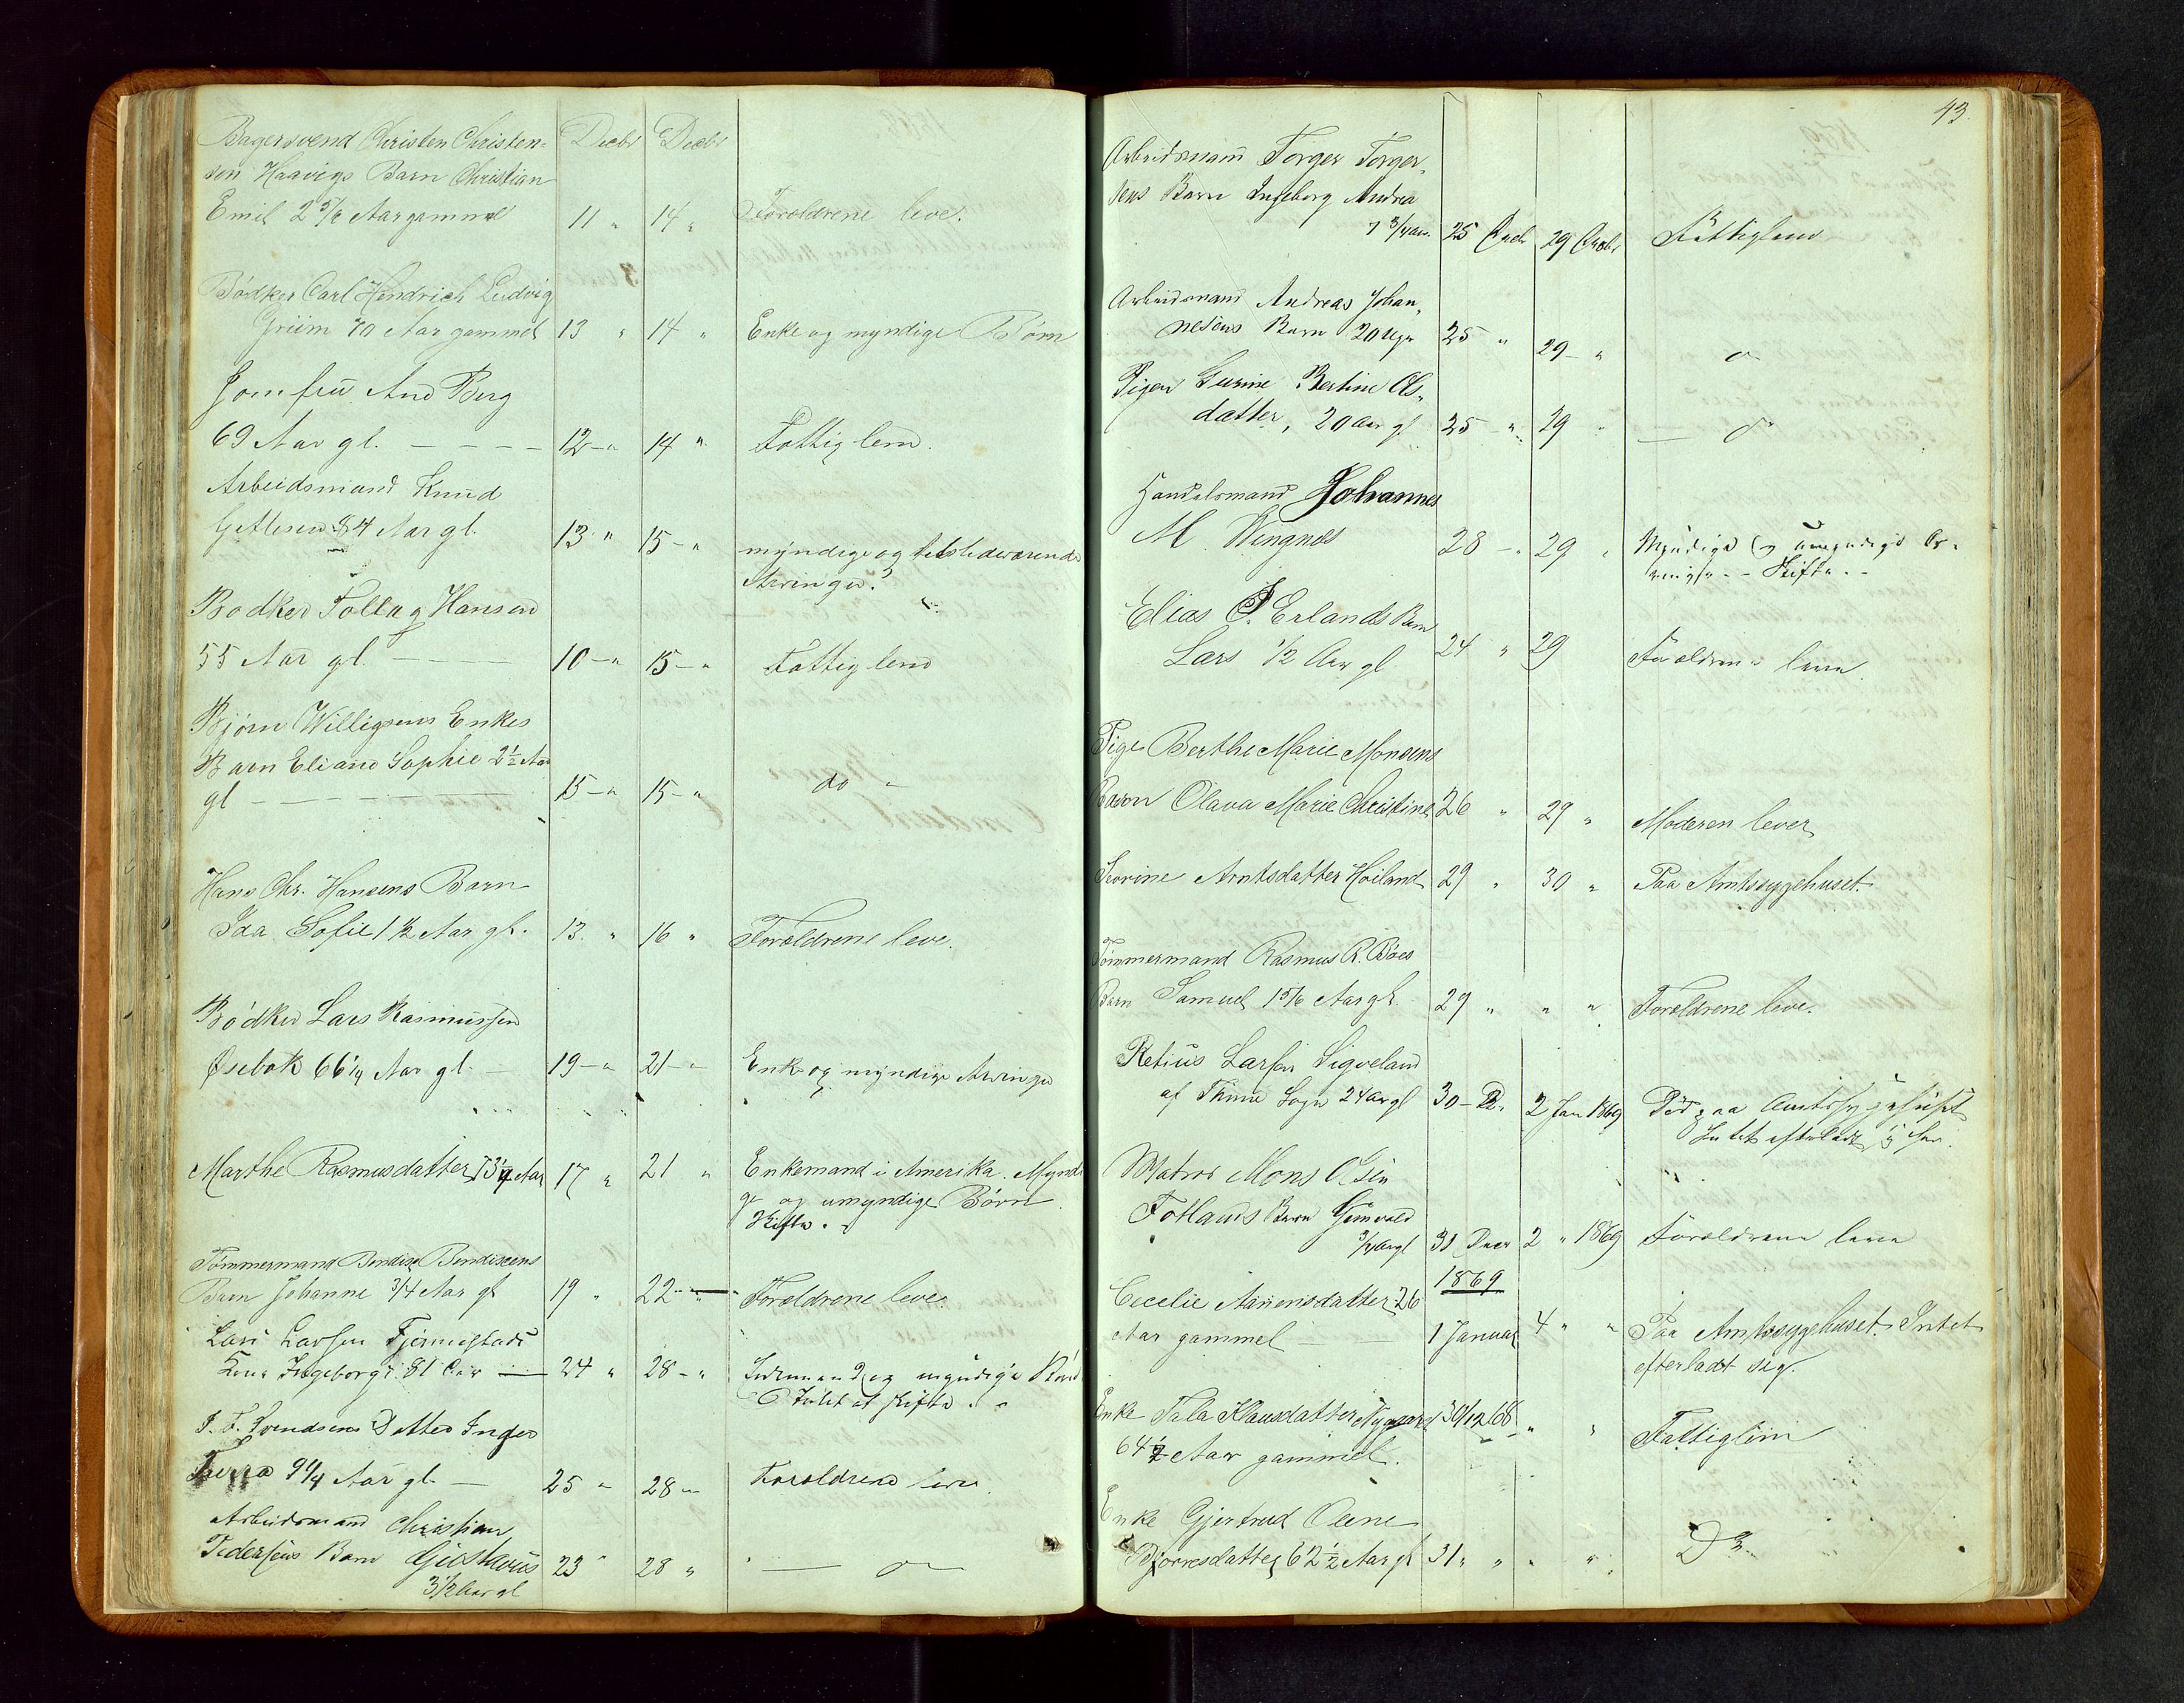 Bagersvend Christen Christen= Decbr Decbr
sen Haavigs Barn Christian
Emil 2 5/6 Aar gammel 11 " 14 " Forældrene leve.
Bødker Carl Hendrich Ludvig
Griim 70 Aar gammel 13 " 14 " Enke og myndige Børn
Jomfru Ane Berg
69 Aar gl. — — — — 12 — " 14 " Fattiglem.
Arbeidsmand Knud
84 Aar gl. 13 " 15 — " myndige og tilstedeværende
Arvinger.
Bødker Hansen
55 Aar gl. — — — 10 — " 15 — " Fattiglem
Bjørn Willigsens Enkes
Barn Eliane Sophie 2 1/2 Aar
gl — — — — 15 — " 15 — " do "
Hans Chr. Hansens Barn
Ida Sofie 1 1/2 Aar gl. 13 " 16 " Forældrene leve.
Bødker Lars Rasmussen
66 1/4 Aar gl. — 19 — " 21 — " Enke og myndige Arvinger
Marthe Rasmusdatter 53 1/4 Aar 17 " 21 " Enkemand i Amerika. Myndi
ge og umyndige Børn.
Skifte.
Tømmermand Bendix Bendixens
Barn Johanne 3/4 Aar gl 19 " 22 — " Forældrene leve.
Lars Larsen Tjemestads
Kone Ingeborg 81 Aar — 24 " 28 — " og myndige Børn
Intet at skifte.
J. F. Svendsens Datter Inger
9 1/4 Aar gl. — 25 " 28 — Forældrene leve.
Arbeidsmand Christian
Pedersens Barn Gustavus 23 " 28 " " — o —
3 1/2 Aar gl
43.
Arbeidsmann Torger Torger„
sens Barn Ingeborg Andrea
7 3/4 aar. 25 Decbr 29 Decbr Fattiglem
Arbeidsmand Andreas Johan„
nesens Barn 20 Uger 25 " 29 — " o
Pigen Gurine Bertine Ols„
datter, 20 aar gl 25 — " 29 " — o
Handelsmand Johannes
M. Wingnes 28 — " 29 " Myndige og umyndige Ar„
vinger. — Skifte. —
Elias E. Erlands Barn
Lars 1/2 Aar gl 24 " 29 Forældrene leve.
Pige Berthe Marie Monsens
Barn Olava Marie Christine 26 " 29 " Moderen lever
Arntsdatter Høiland 29 " 30 " Paa Amtssygehuset.
Tømmermand Rasmus R. Bøes
Barn Samuel 1 5/6 Aar gl. 29 " " " Forældrene leve.
Larsen Sigveland
af Thime Sogn 24 aar gl 30 — D. 2 Jan 1869 Død paa Amtssygehuset
Intet efterladt sig.
Matros Mons Olsen
Fotlands Barn
3/4 aar gl 31 Decbr 2 " 1869 Forældrene leve
1869
Cecelie Aanensdatter 26
Aar gammel — — 1 Januar 4 " " Paa Amtssygehuset. Intet
efterladt sig.
Enke Tala Klausdatter Nygaard 30/12 68 " " Fattiglem
64 1/2 Aar gammel.
Enke Gjertrud Oline
Bjørnesdatter 62 1/2 Aar gl 31 " " " " Do.